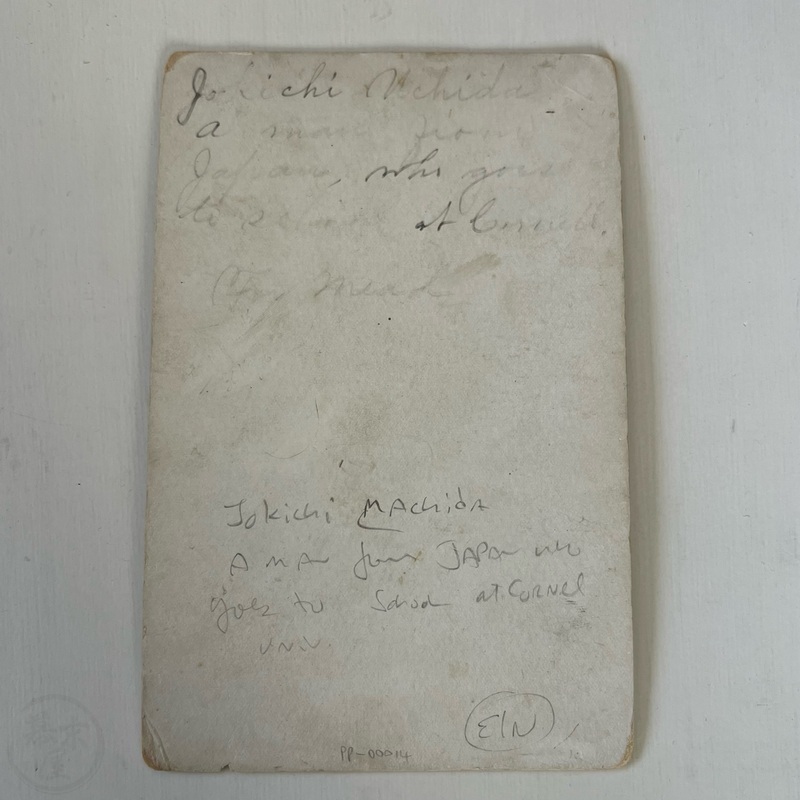 Jokichi Uchida
a man from
Japan, who goes
to school at Cornell.
Mead
Jokichi MAchidA
A MAN from JAPAN who
goes to School at CORNEL
UNIV.
EIN
PP-00014